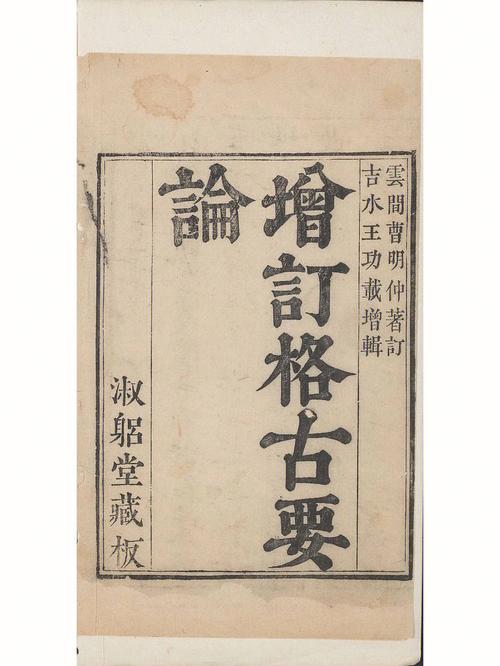 雲間曹明仲著訂
吉水王功載增輯
增訂格古要
論
淑躬堂藏板